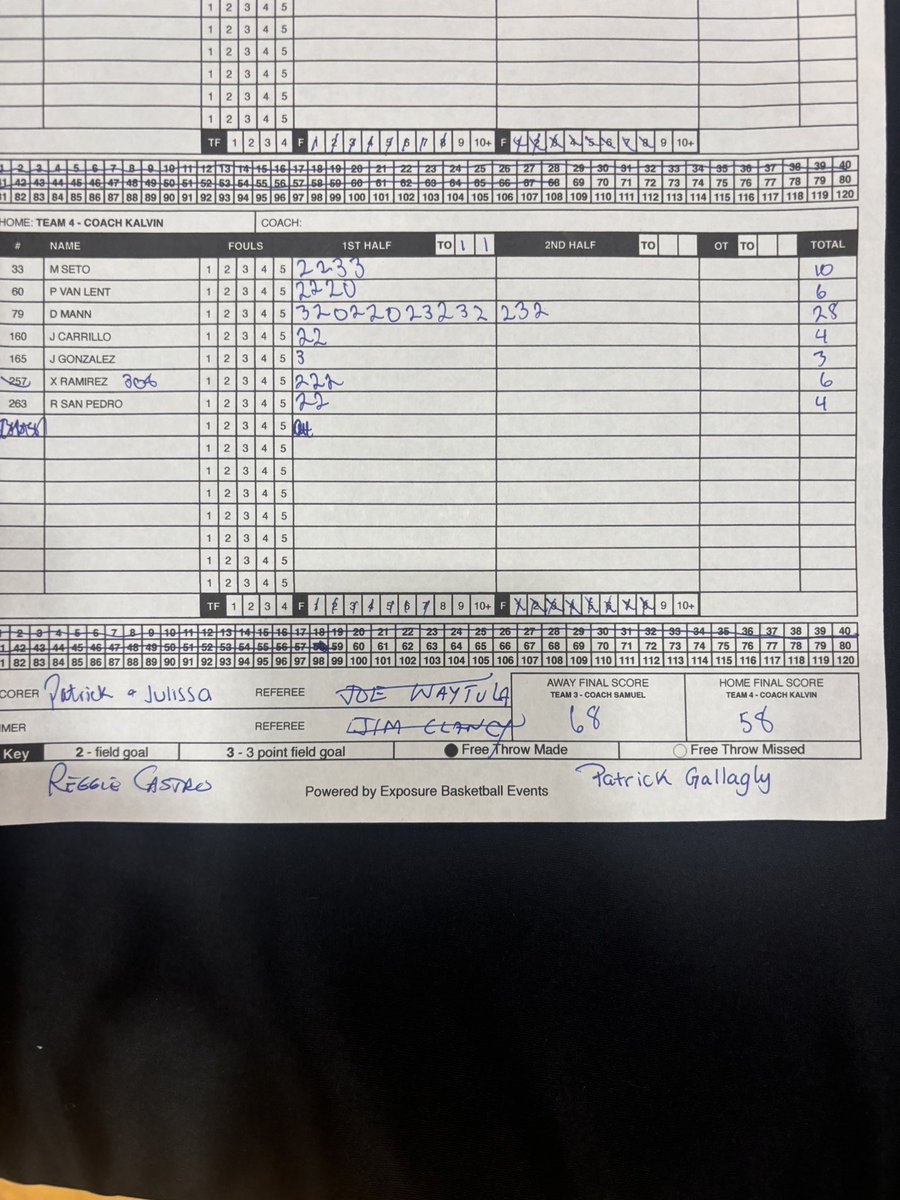 1 2 3 4 5
1 2 3 4 5
1 2 3 4 5
1 2 3 4 5
1 2 3 4 5
1 2 3 4 5
TF 1 2 3 4 F 1 2 3 4 5 6 7 8 9 10+ F 1 2 3 4 5 6 7 8 9 10+
1 2 3 4 5 6 7 8 9 10 11 12 13 14 15 16 17 18 19 20 21 22 23 24 25 26 27 28 29 30 31 32 33 34 35 36 37 38 39 40
42 43 44 45 46 47 48 49 50 51 52 53 54 55 56 57 58 59 60 61 62 63 64 65 66 67 68 69 70 71 72 73 74 75 76 77 78 79 80
82 83 84 85 86 87 88 89 90 91 92 93 94 95 96 97 98 99 100 101 102 103 104 105 106 107 108 109 110 111 112 113 114 115 116 117 118 119 120
HOME: TEAM 4 - COACH KALVIN COACH:
# NAME FOULS 1ST HALF TO 1 1 2ND HALF TO OT TO TOTAL
33 M SETO 1 2 3 4 5 2233 10
60 P VAN LENT 1 2 3 4 5 2220 6
79 D MANN 1 2 3 4 5 32022023232 232 28
160 J CARRILLO 1 2 3 4 5 22 4
165 J GONZALEZ 1 2 3 4 5 3 3
257 X RAMIREZ 306 1 2 3 4 5 222 6
263 R SAN PEDRO 1 2 3 4 5 22 4
1 2 3 4 5
1 2 3 4 5
1 2 3 4 5
1 2 3 4 5
1 2 3 4 5
1 2 3 4 5
1 2 3 4 5
1 2 3 4 5
TF 1 2 3 4 F 1 2 3 4 5 6 7 8 9 10+ F 1 2 3 4 5 6 7 8 9 10+
2 3 4 5 6 7 8 9 10 11 12 13 14 15 16 17 18 19 20 21 22 23 24 25 26 27 28 29 30 31 32 33 34 35 36 37 38 39 40
42 43 44 45 46 47 48 49 50 51 52 53 54 55 56 57 58 59 60 61 62 63 64 65 66 67 68 69 70 71 72 73 74 75 76 77 78 79 80
82 83 84 85 86 87 88 89 90 91 92 93 94 95 96 97 98 99 100 101 102 103 104 105 106 107 108 109 110 111 112 113 114 115 116 117 118 119 120
CORER Patrick & Julissa REFEREE JOE WAYTULA AWAY FINAL SCORE HOME FINAL SCORE
TEAM 3 - COACH SAMUEL TEAM 4 - COACH KALVIN
MER REFEREE JIM CLANCY 68 58
Key 2 - field goal 3 - 3 point field goal Free Throw Made Free Throw Missed
REGGIE CASTRO Patrick Gallagly
Powered by Exposure Basketball Events